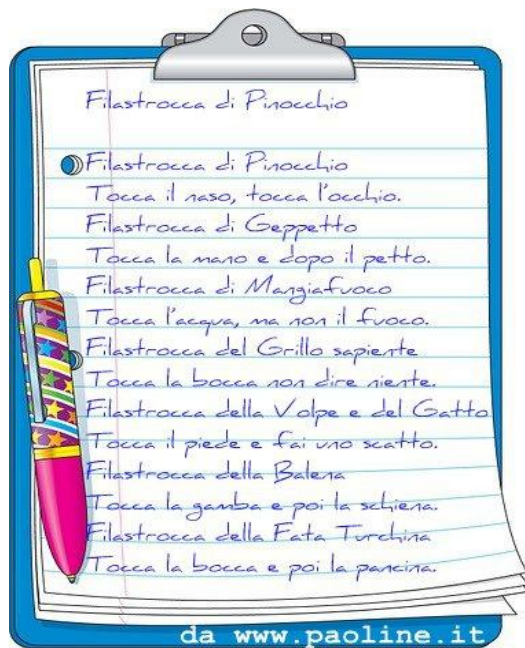 Filastrocca di Pinocchio
Filastrocca di Pinocchio
Tocca il naso, tocca l'occhio.
Filastrocca di Geppetto
Tocca la mano e dopo il petto.
Filastrocca di Mangiafuoco
Tocca l'acqua, ma non il fuoco.
Filastrocca del Grillo sapiente
Tocca la bocca non dire niente.
Filastrocca della Volpe e del Gatto
Tocca il piede e fai uno scatto.
Filastrocca della Balena
Tocca la gamba e poi la schiena.
Filastrocca della Fata Turchina
Tocca la bocca e poi la pancina.
da www.paoline.it